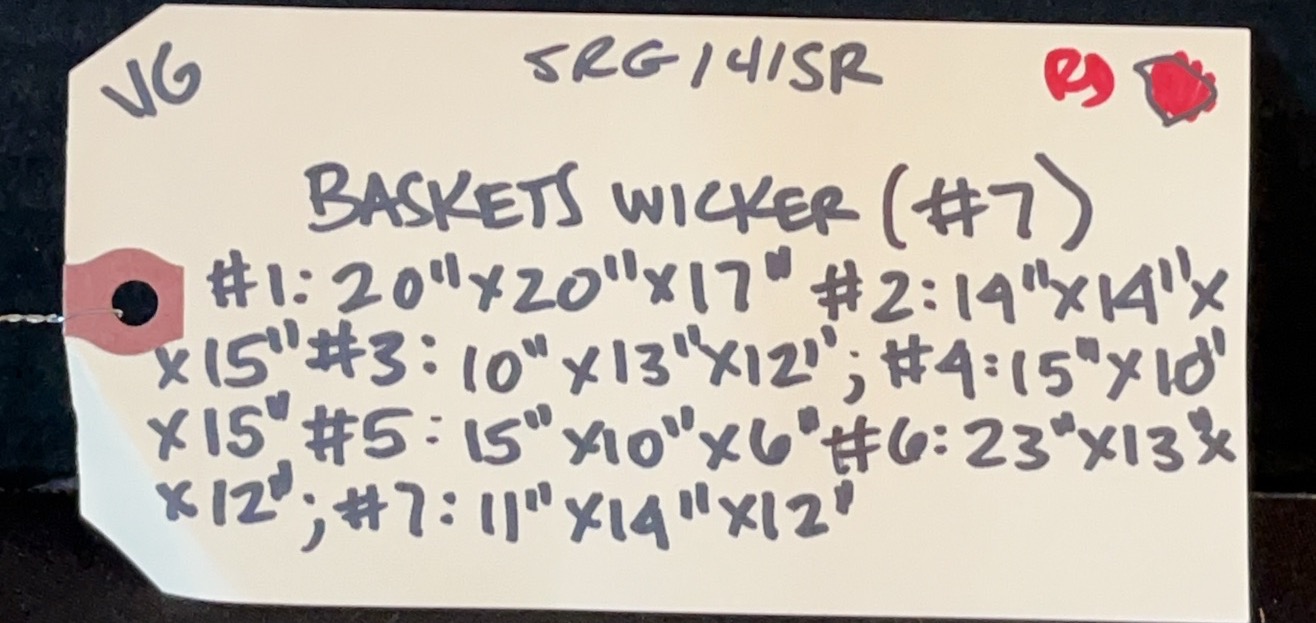 VG 5RG/41SR RD
BASKETS WICKER (#7)
#1: 20"x20"x17" #2: 14"x14"x
x15" #3: 10"x13"x12"; #4: 15"x10"
x15" #5: 15"x10"x6" #6: 23"x13"x
x12"; #7: 11"x14"x12"